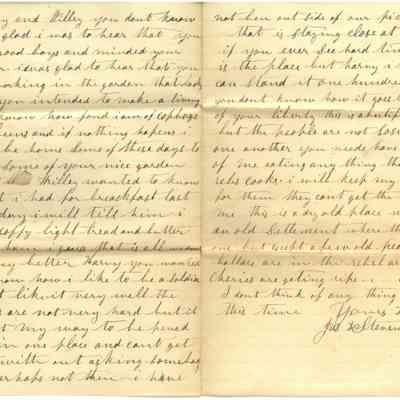 ry and Willey you dont know
glad i was to hear that you
ood boys and minded your
i was glad to hear that you
orking in the garden that
you intended to make a
know how fond i am of cabbage
eens and if nothing hapens i
be home some of these days to
some of your nice garden
Willey wanted to know
t i had for breackfast last
day i will tell him i
coffy light bread and butter
ham i guess that is all
ny better Harry you wanted
now how i like to be a soldier
t like it very well the
s are not very hard but it
t my way to be pened
in one place and cant get
without asking somebody
erhaps not then i have
not ben out side of our pic
that is staying close at
if you ever see hard tim
is the place but harry i
can stand it one hundred
you dont know how it goes t
of your liberty this is a butiful
but the people are not
one another you needs have
of me eating any thing tha
rebs cooks i will keep my
for them they cant get the
me this is a dry old place
an old settlement where th
one but
dollars are in the rebel ar
Cheries are geting ripe
I dont think of any thing
this time Yours
Steven